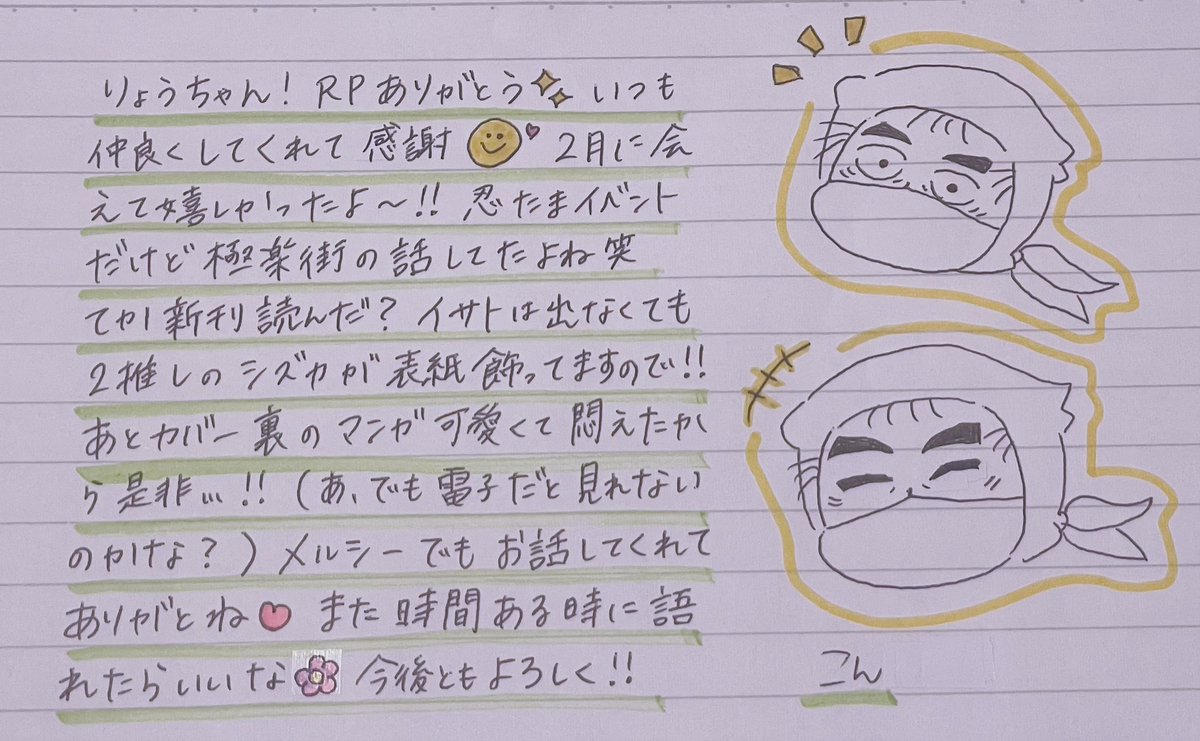 りょうちゃん! RPありがとう いつも
仲良くしてくれて 感謝 2月に会
えて嬉しかったよ〜!! 忍たまイベント
だけど 極楽街の話してたよね笑
てか新刊読んだ? イサトは出なくても
2推しのシズカが表紙飾ってますので!!
あとカバー裏のマンガ可愛くて悶えたか
ら是非…!! (あ、でも電子だと見れない
のかけな?) メルシーでもお話してくれて
ありがとね また時間ある時に語
れたらいいな 今後ともよろしく!!
こん